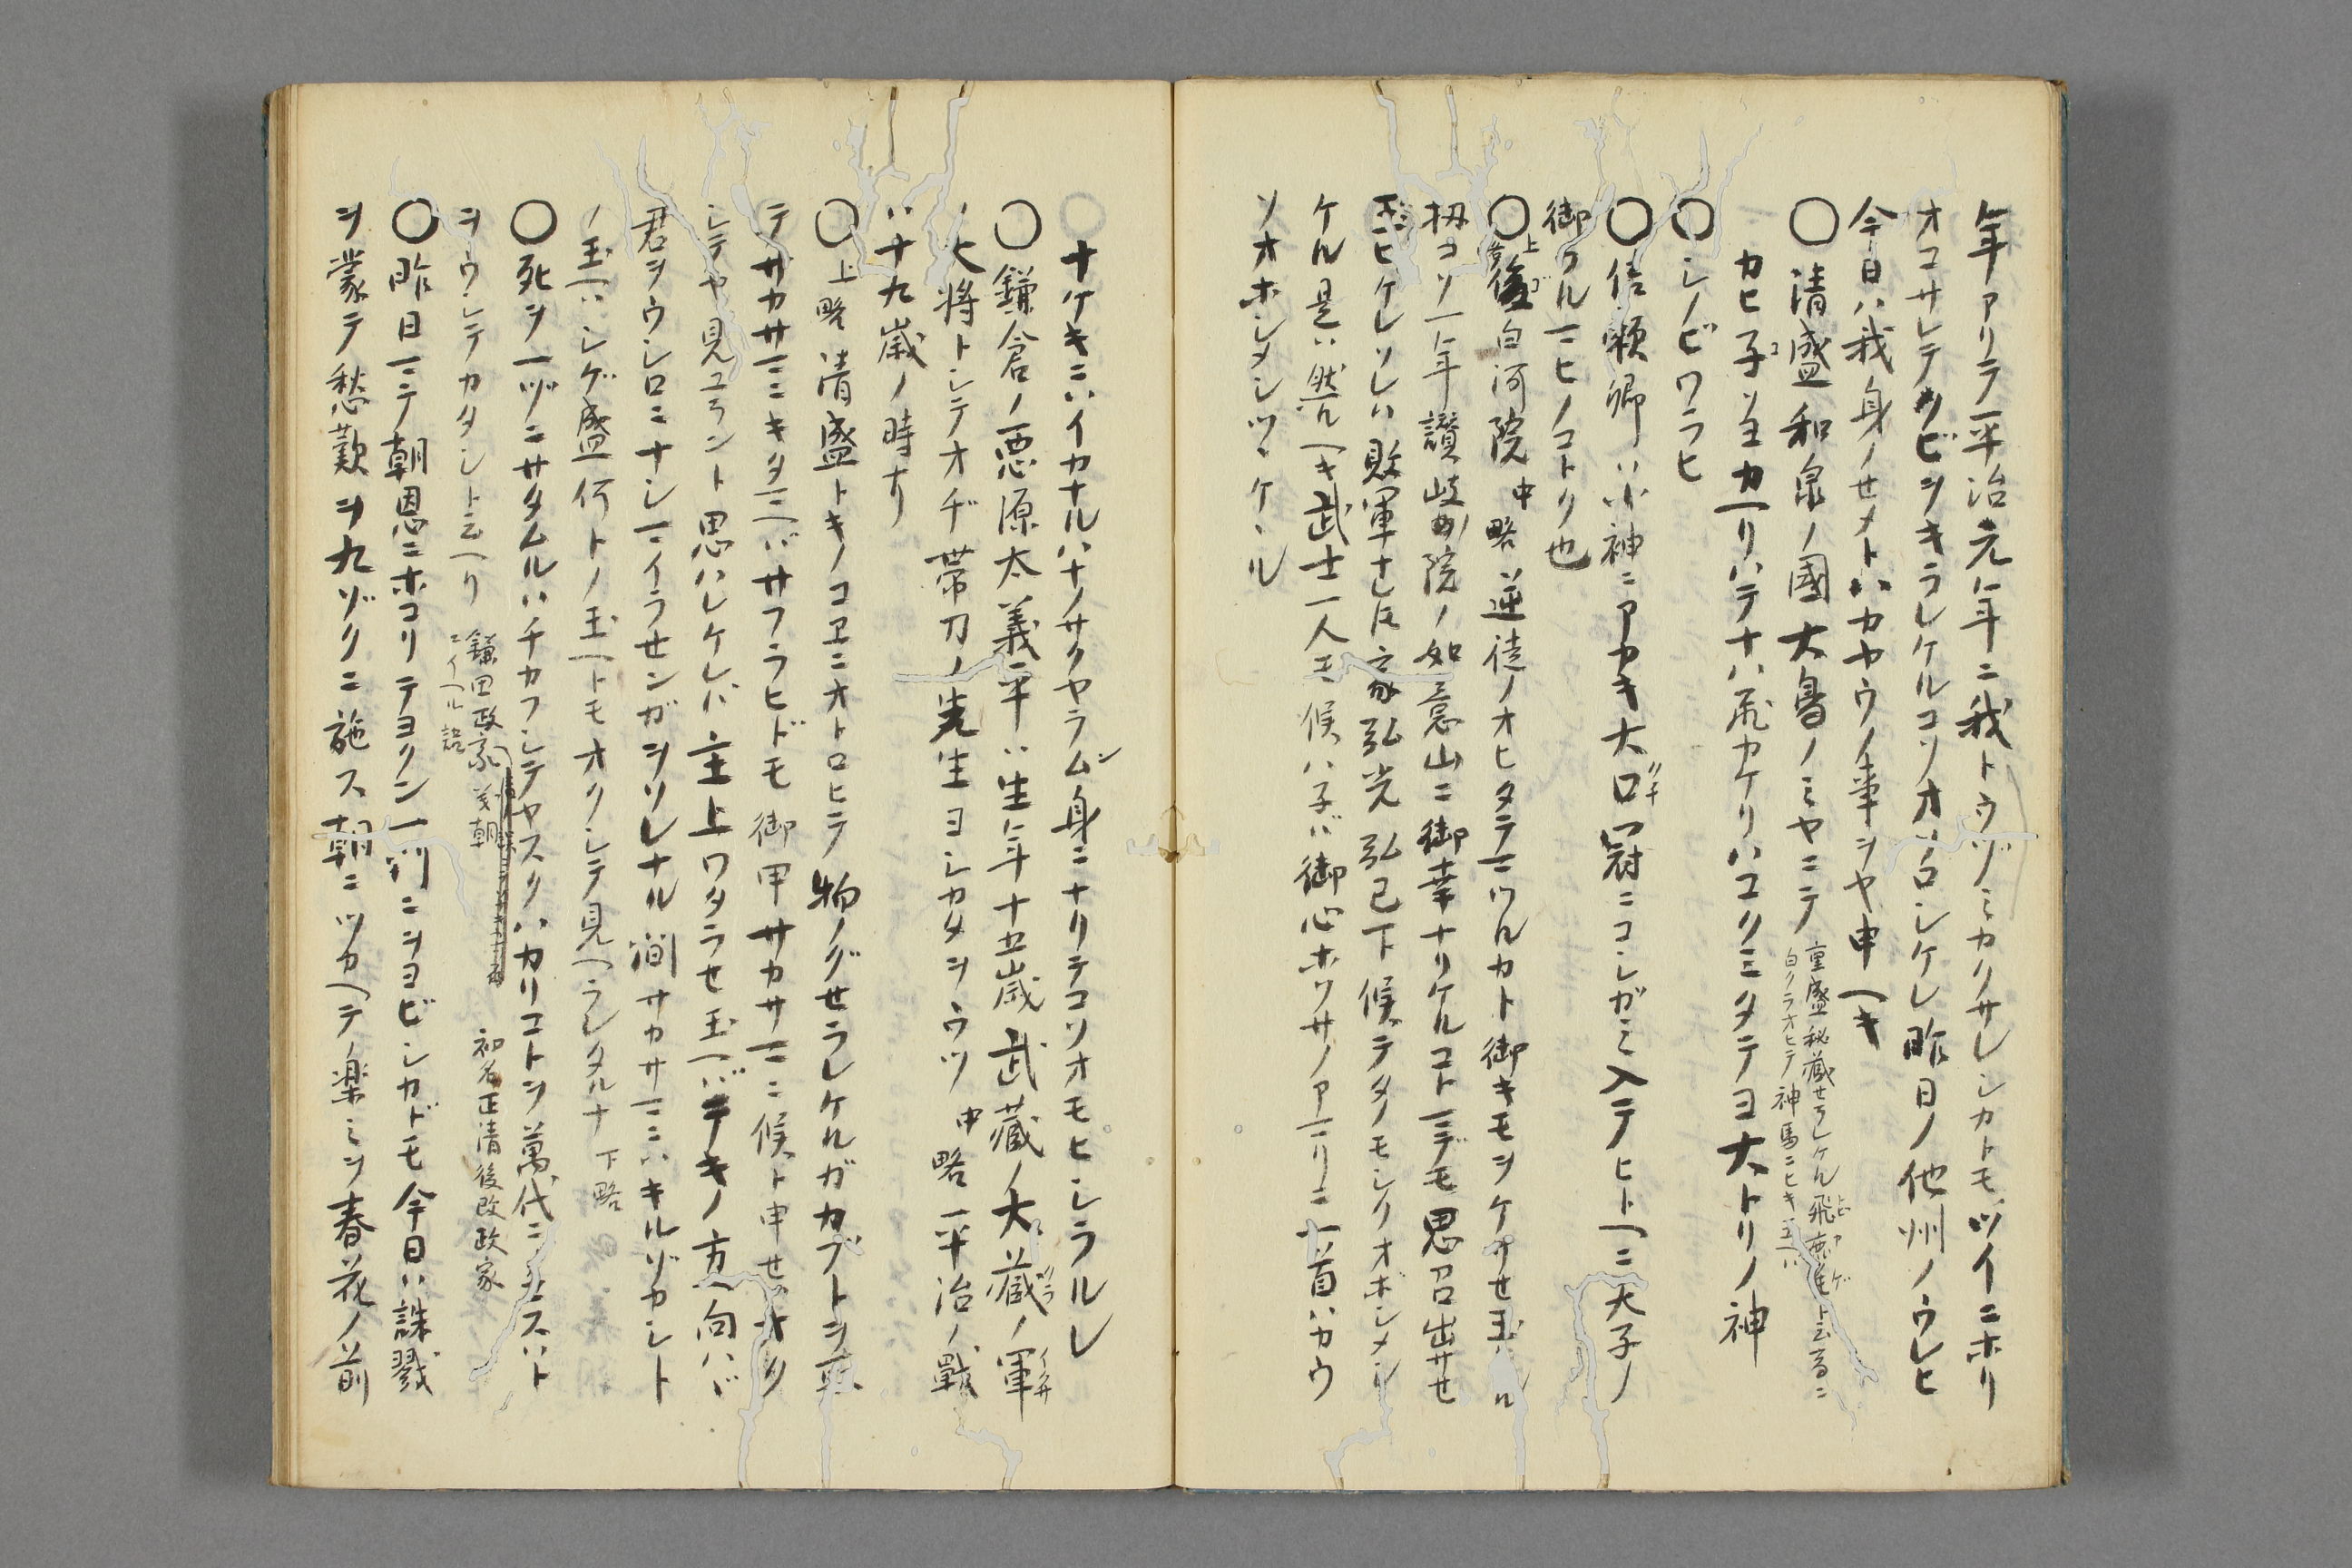 年アリテ平治元年ニ我トウヅミカクサレシカトモツイニホリ
オコサレテクビヲキラレケルコソオソロシケレ昨日ノ他州ノウレヒ
今日ハ我身ノセメトハカヤウノ事ヲヤ申ヘキ
〇清盛和泉ノ國大鳥ノミヤニテ
重盛秘蔵セラレケル飛鹿毛ト云馬ニ
白クラオヒテ神馬ニヒキ玉ヘハ
カヒ子ゾヨカヘリハテナバ飛カケリハコクミタテヨ大トリノ神
〇シノビワラヒ
〇信頼卿ハ小神ニアカキ大口冠ニコシガミ入テヒトヘニ天子ノ
御フルマヒノコトク也
〇上後白河院中略逆徒ノオヒタテマツルカト御キモヲケサセ玉ヒ
扨コソ一年讃岐ノ院ノ如意山ニ御幸ナリケルコトマデモ思召出サセ
玉ヒケレソレハ敗軍ナレ𪜈家弘光弘已下候テタノモシクオボシメシ
ケル是ハ然ルヘキ武士一人モ候ハ子バ御心ホソサノアマリニ一首ハカウ
ソオホシメシツヽケヽル
ナケキニハイカナルハナノサクヤラム身ニナリテコソオモヒシラルレ
〇鎌倉ノ悪源太義平ハ生年十五歳武蔵ノ大蔵ノ軍
ノ大将トシテオヂ帯刀ノ先生ヨシカタヲウツ中略平治ノ戦
ハ十九歳ノ時ナリ
〇上略清盛トキノコヱニオトロヒテ物ノグセラレケルガカブトヲ取
テサカサマニキタマヘバサフラヒドモ御甲サカサマニ候ト申セバオク
シテヤ見ユラント思ハレケレバ主上ワタラセ玉ヘバテキノ方ヘ向ハヾ
君ヲウシロニナシマイラセンガヲソレナル間サカサマニハキルゾカシト
ノ玉ヘハシゲ盛何トノ玉ヘトモオクシテ見ヘラレタルナ下略
〇死ヲ一ツニサタムルハチカフシテヤスクハカリコトヲ萬代ニノコスハト
ヲウシテカタシト云ヘリ
鎌田政家義朝
ニイヘル詞
初名正清後改政家
〇昨日マテ朝恩ニホコリテヨクン一門ニヲヨビシカドモ今日ハ誅戮
ヲ蒙テ愁歎ヲ九ゾクニ施ス朝ニツカヘテ楽ミヲ春花ノ前